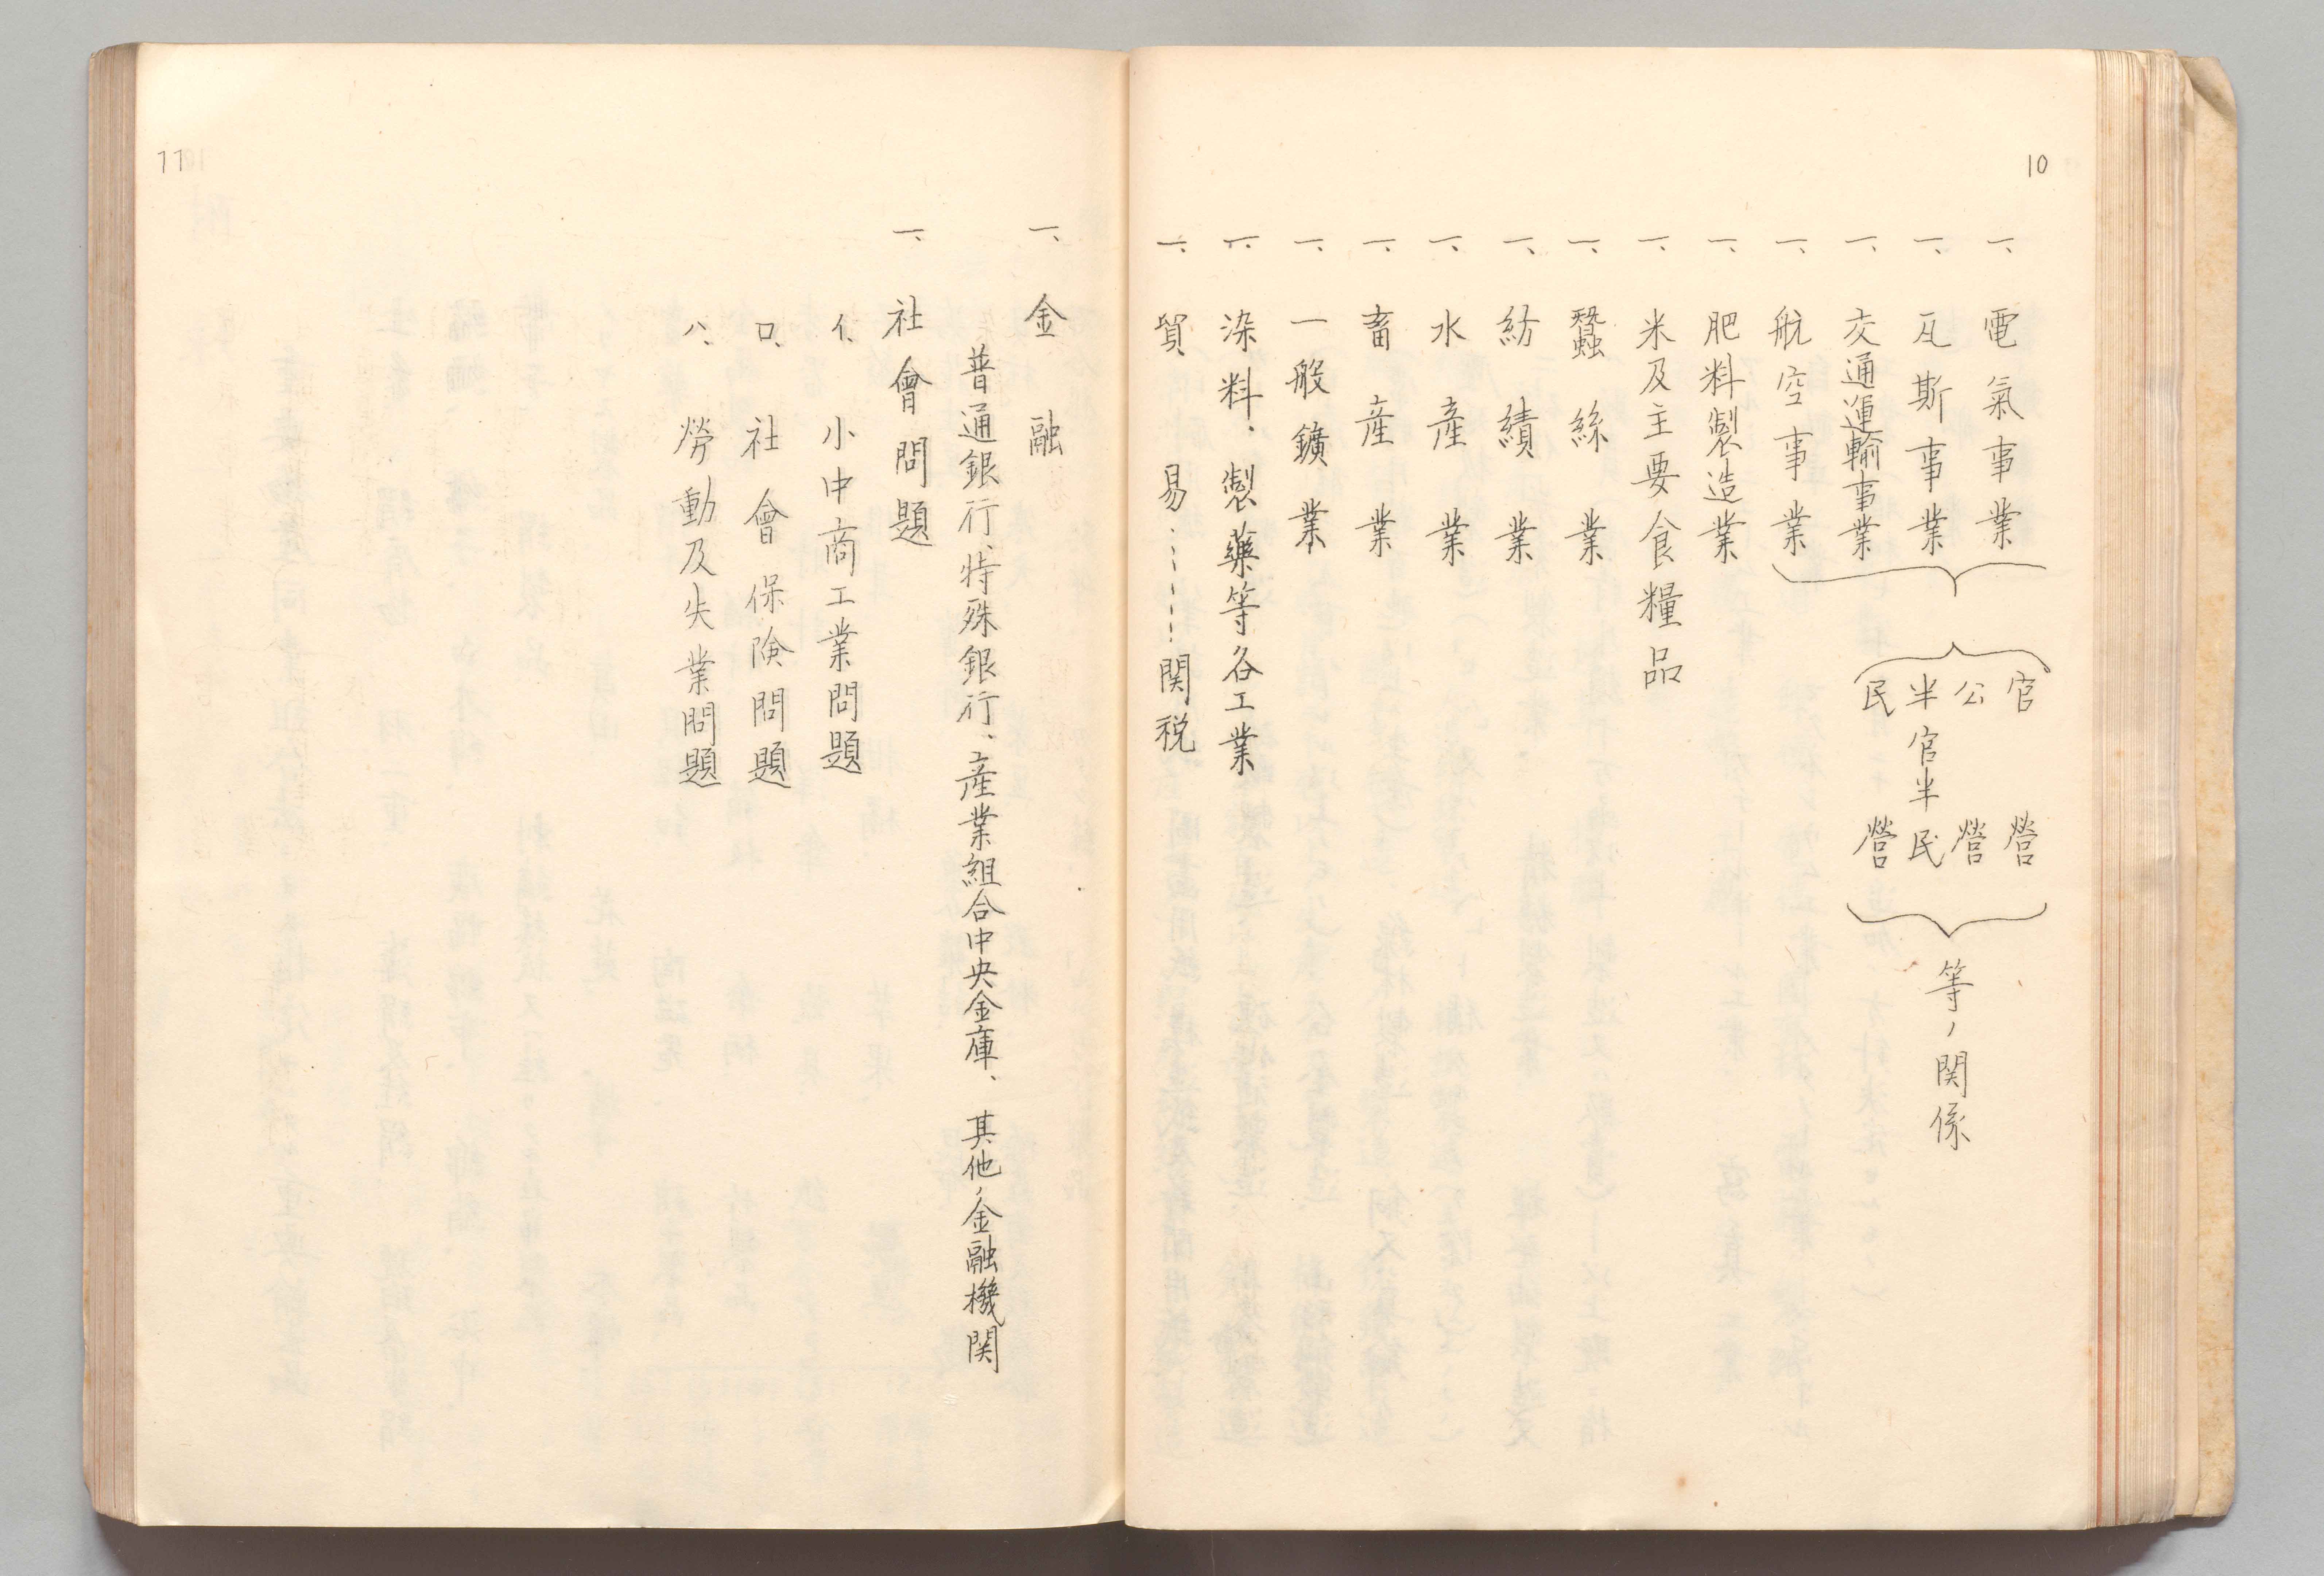 10
一、電氣事業
一、瓦斯事業
一、交通運輸事業
一、航空事業
官營
公營
半官半民
民營
等ノ関係
一、肥料製造業
一、米及主要食糧品
一、蠶絲業
一、紡績業
一、水産業
一、畜産業
一、一般鑛業
一、染料、製藥等各工業
一、貿易………関税
11
一、金融
普通銀行、特殊銀行、産業組合中央金庫、其他ノ金融機関
一、社會問題
イ、小中商工業問題
ロ、社會保険問題
ハ、勞動及失業問題